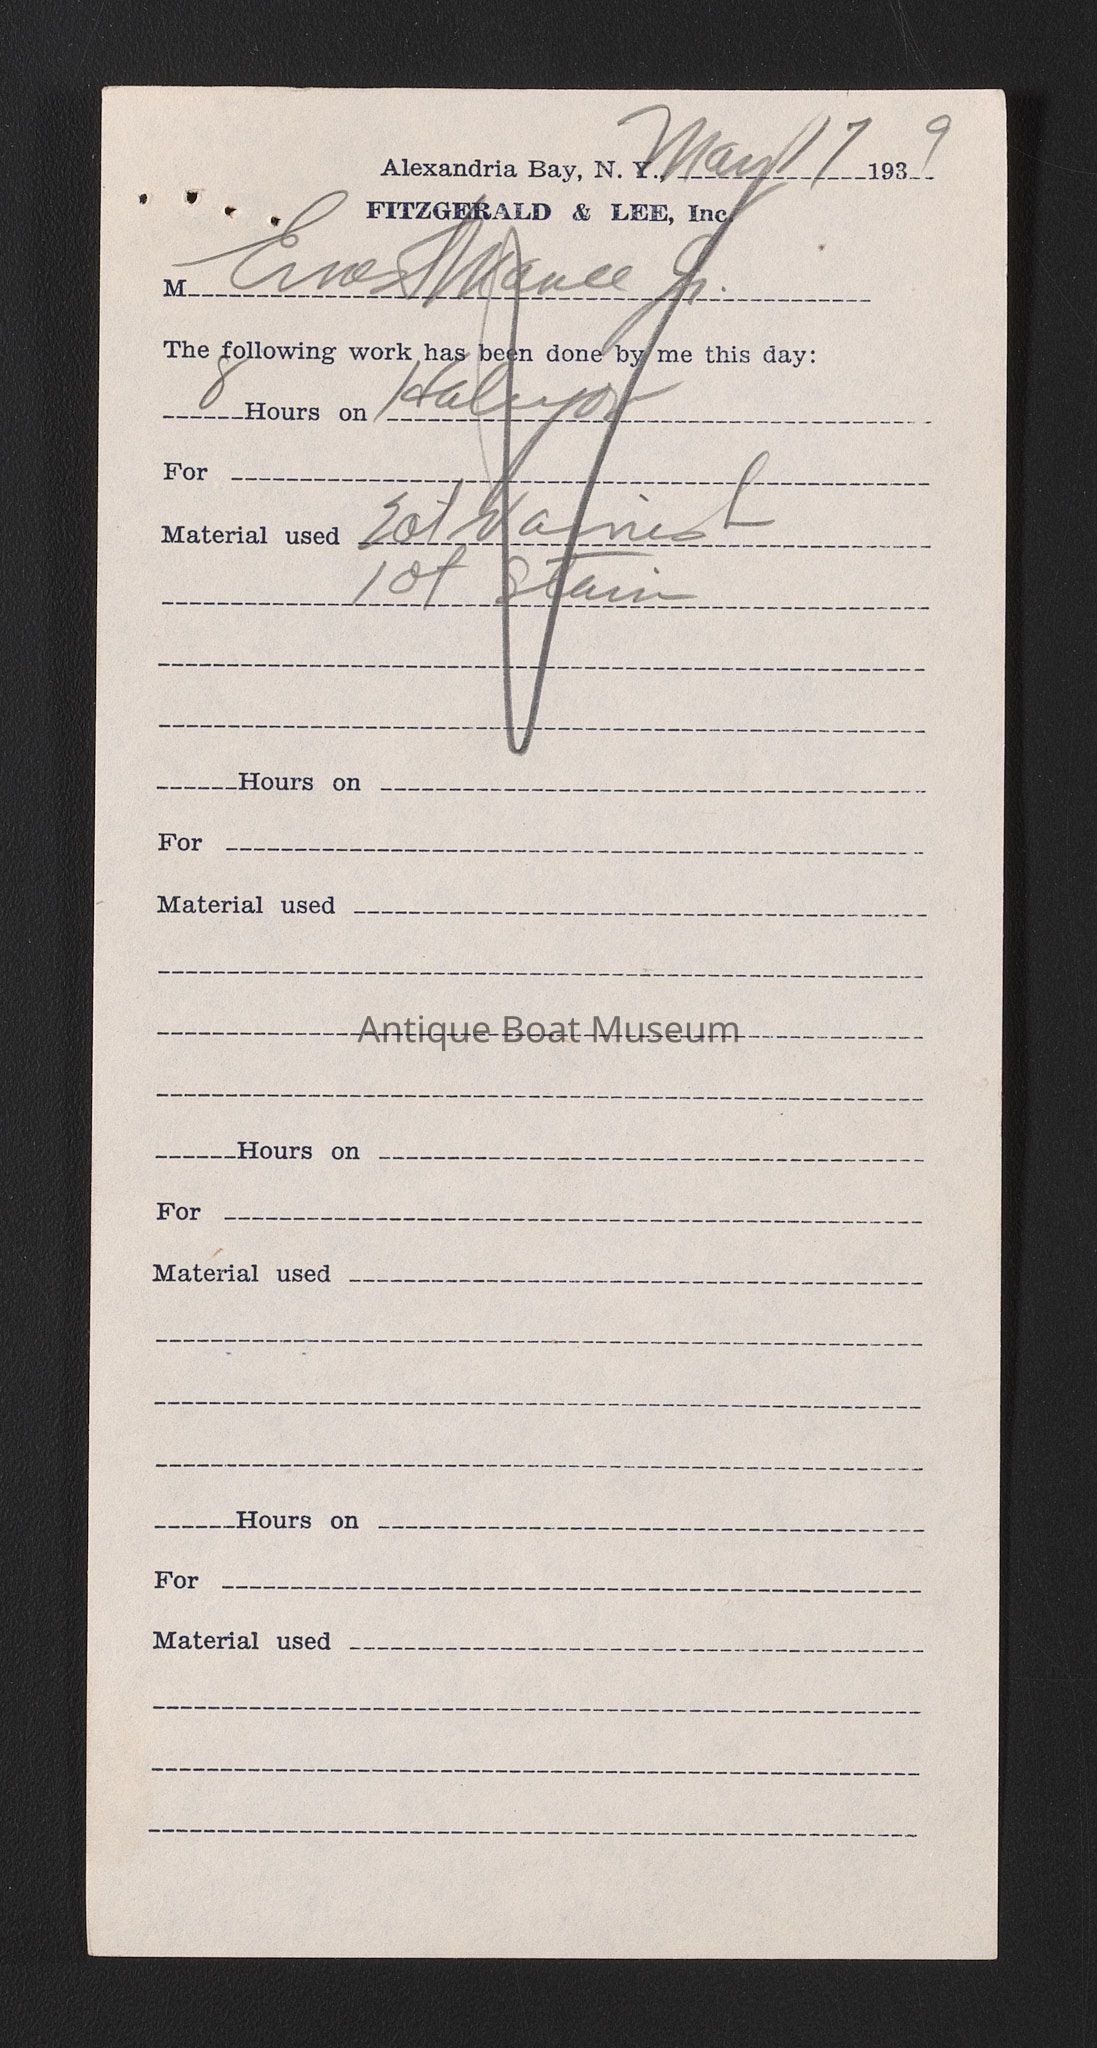 Alexandria Bay, N. Y. May 17 1939
FITZGERALD & LEE, Inc.
M Ernest Mance Jr.
The following work has been done by me this day:
8 Hours on
For
Material used 2 qt Varnish
1 qt Stain
Hours on
For
Material used
Antique Boat Museum
Hours on
For
Material used
Hours on
For
Material used